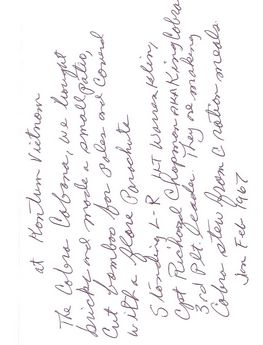 at Kontum Vietnam
The Cobra Cabana, we bought
bricks and made a small patio,
Cut bamboo for poles and covered
with a flare Parachute
Standing L-R LT Warren Klein,
Cpt Richard Chapman AKA King Cobra
3rd Plt. Leader They are making
Cobra stew from C ration meals.
Jan Feb 1967